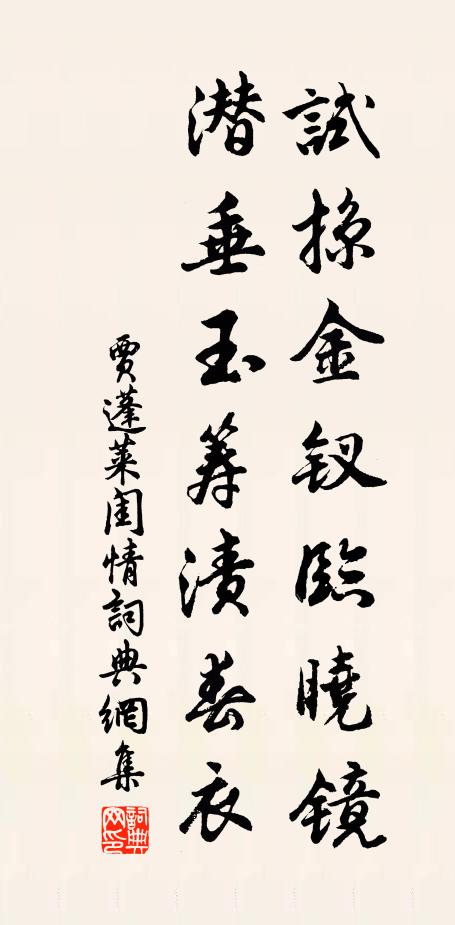 試掠金釵臨曉鏡
潜垂玉箸漬春衣
賈蓬萊閨情詞典網集
詞典网印